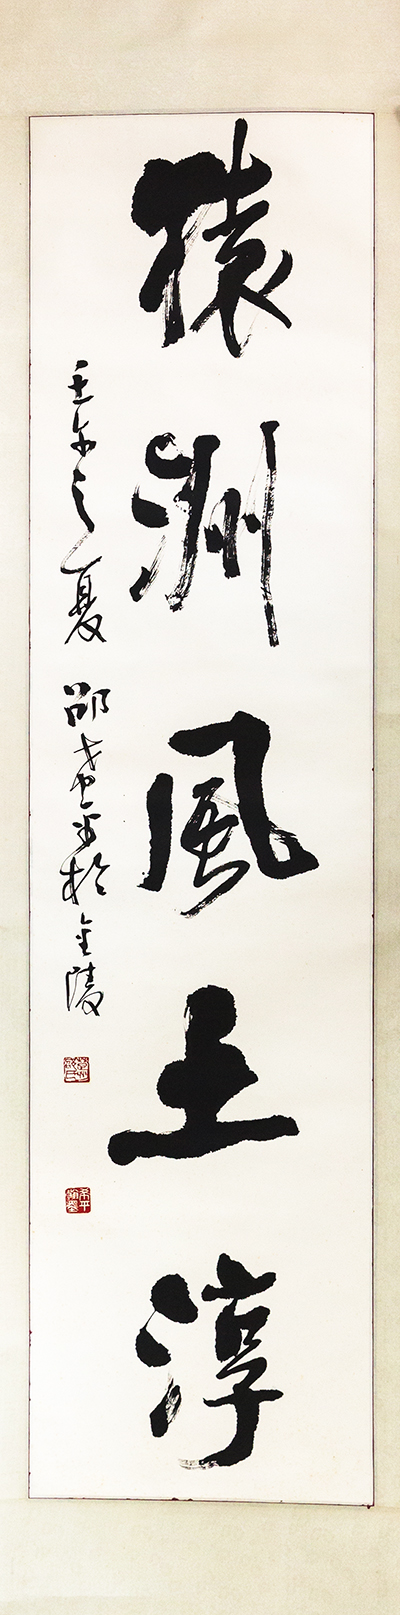 猿洲風土淳
壬午之夏 邵希平於金陵